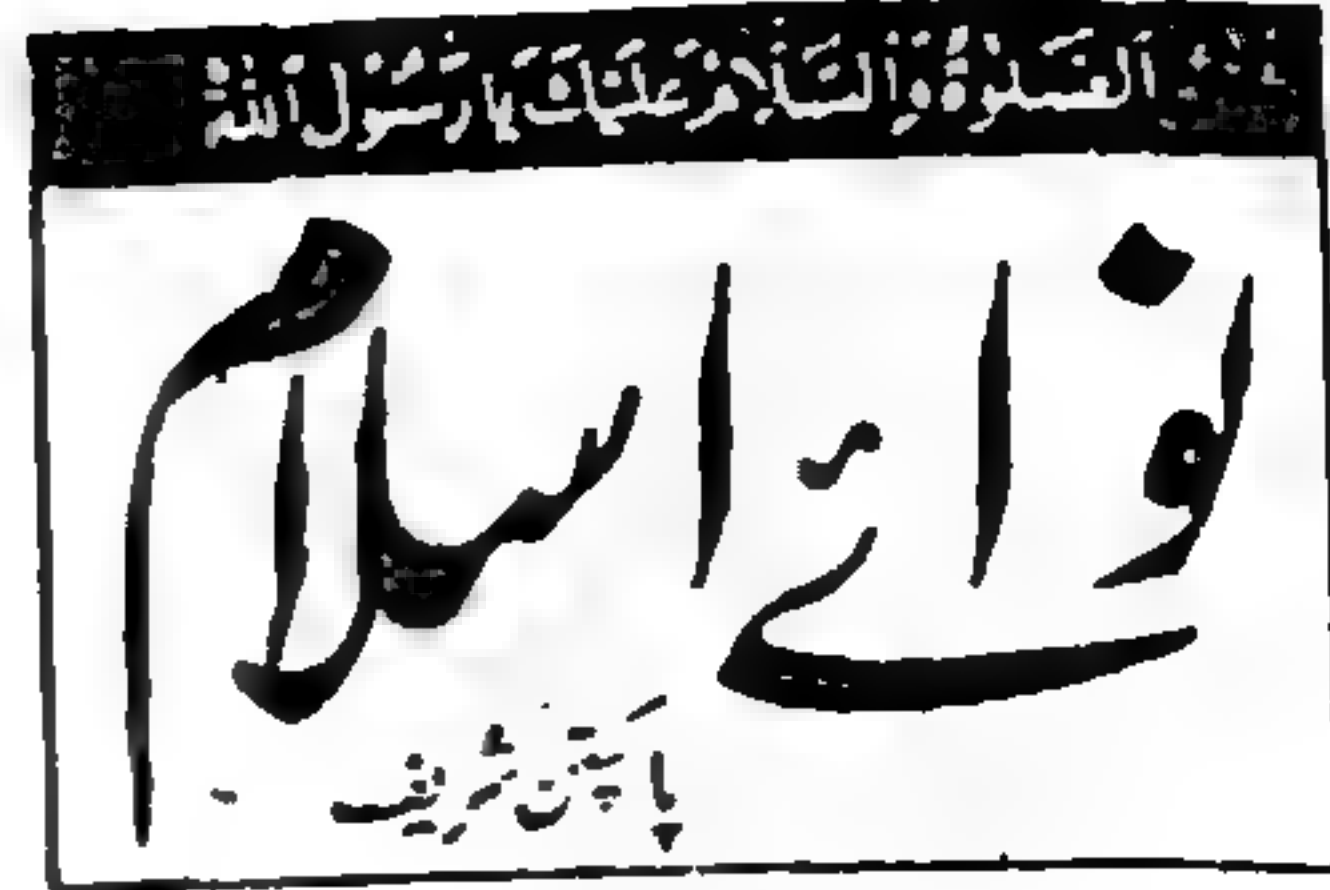 اَلصَّلٰوةُ وَالسَّلَامُ عَلَیْكَ یَا رَسُوْلَ اللّٰهِ
نوائے اسلام
پاکپتن شریف